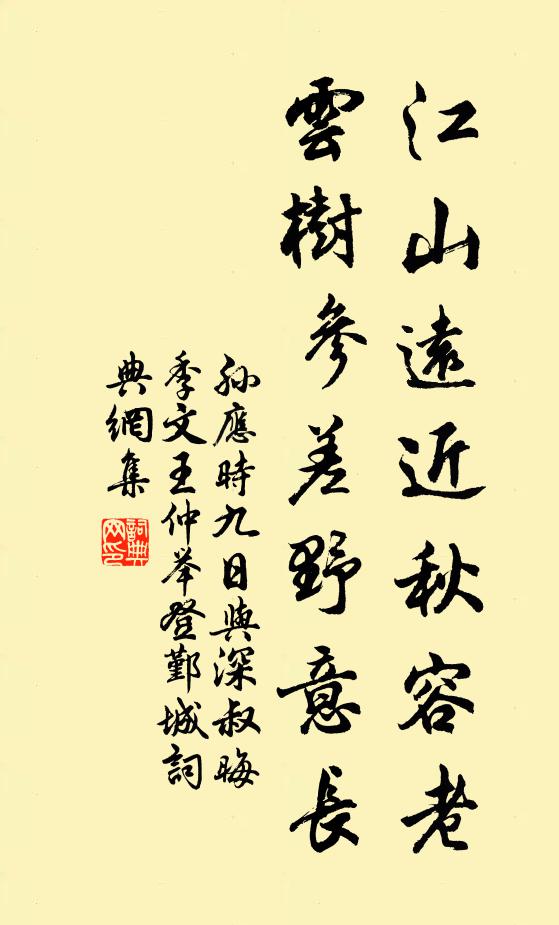 江山遠近秋容老
雲樹參差野意長
孫應時九日與深叔晦
季文王仲举登鄞城詞
典網集
詞典网印